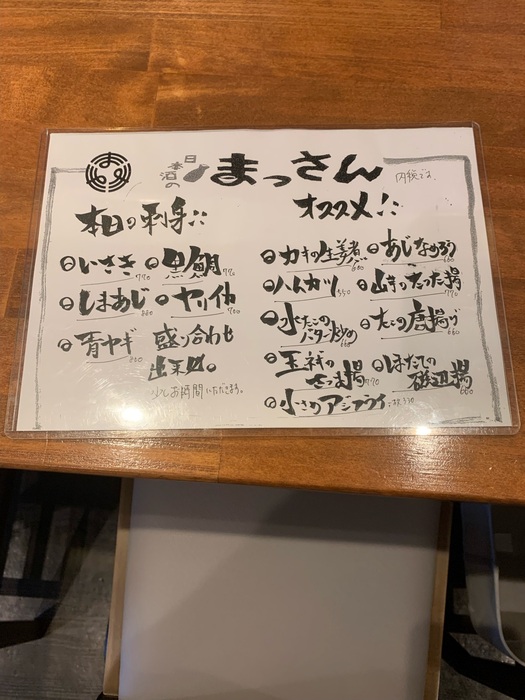 日本酒の まっさん
内税です。
本日の刺身!!
◎いさき 770 ◎黒鯛 770
◎しまあじ ◎ヤリイカ
◎青ヤギ 盛り合わせ
出来〼。
少しお時間いただきます。
オススメ!!
◎カキの生姜煮 ◎あじなめろう
◎ハムカツ 550 ◎山芋のたつた揚 770
◎水だこのバター炒め ◎たこの唐揚げ 660
◎玉ネギのさつま揚 770 ◎ほたての磯辺揚 660
◎小さめアジフライ